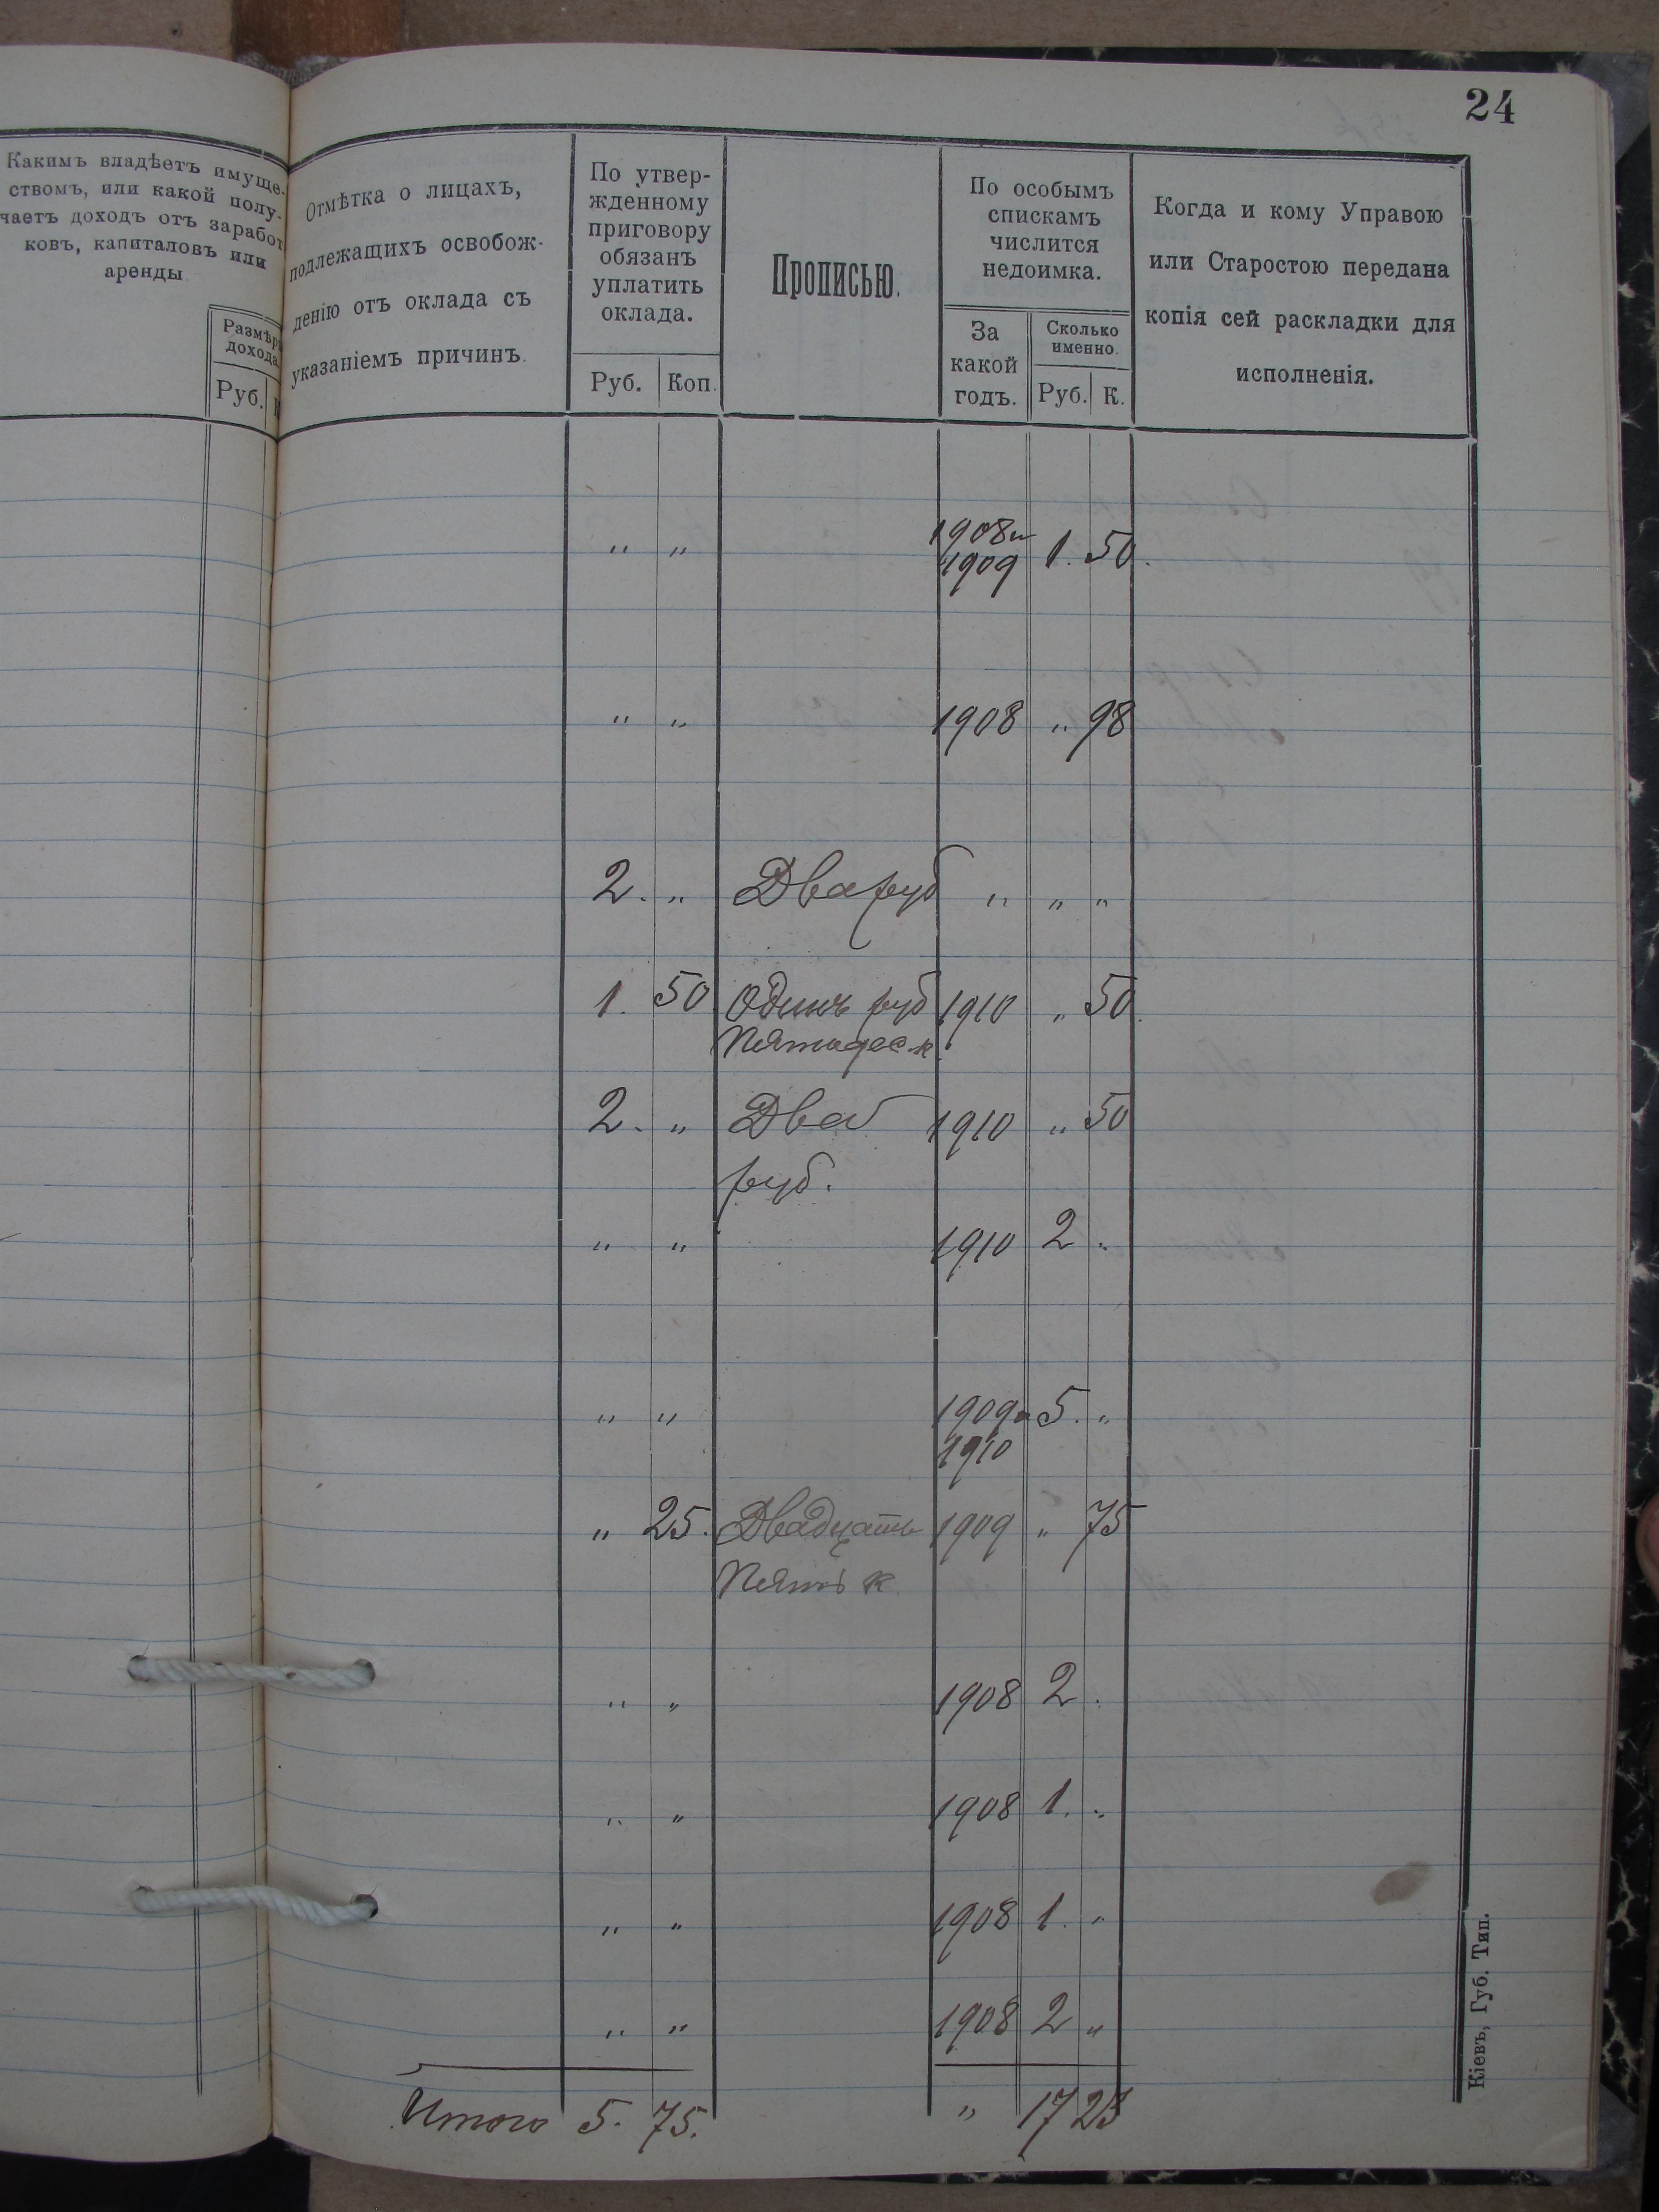 24
Какимъ владѣетъ имуще-
ствомъ, или какой полу-
чаетъ доходъ отъ заработ
ковъ, капиталовъ или
аренды.
Размѣръ
дохода
Руб.
Отмѣтка о лицахъ,
подлежащихъ освобож-
денію отъ оклада съ
указаніемъ причинъ.
По утвер-
жденному
приговору
обязанъ
уплатить
оклада.
Руб. Коп.
Прописью.
По особымъ
спискамъ
числится
недоимка.
За
какой
годъ.
Сколько
именно.
Руб. К.
Когда и кому Управою
или Старостою передана
копія сей раскладки для
исполненія.
" " 1908 и
1909 1. 50.
" " 1908 " 98
2. " Два руб " " "
1. 50 Одинъ руб 1910 " 50.
Пятьдес. к.
2. " Два 1910 " 50
руб.
" " 1910 2 "
" " 1909 и 5. "
1910
" 25. Двадцать 1909 " 75
Пять к.
" " 1908 2 "
" " 1908 1. "
" " 1908 1. "
" " 1908 2 "
Итого 5. 75. " 17 23
Кіевъ, Губ. Тип.